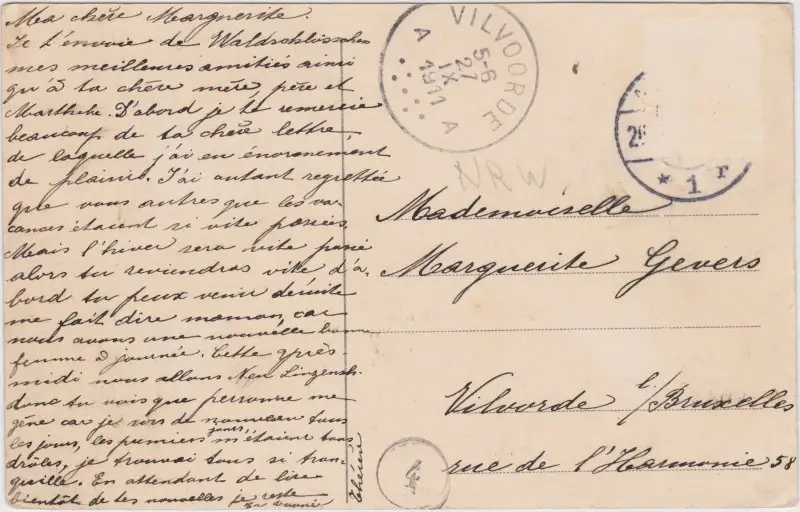 Ma chère Marguerite.
Je t'envoie de Waldschlösschen
mes meilleures amitiés ainsi
qu'à ta chère mère, père et
Marthche. D'abord je te remercie
beaucoup de ta chère lettre,
de laquelle j'ai eu énormement
de plaisir. J'ai autant regrettée
que vous autres que les va-
cances étaient si vite passées.
Mais l'hiver sera vite passé
alors tu reviendras vite d'a-
bord tu peux venir desuite
me fait dire maman, car
nous avons une nouvelle bonne
femme à journée. Cette après-
midi nous allons Neu
donc tu vois que personne me
gêne car je sors de nouveau tous
les jours, les premiers jours, m'étaient tous
drôles, je trouvai tous si tran-
quille. En attendant de lire
bientôt de tes nouvelles je reste
VILVOORDE
5-6
27
IX
1911
A A
NRW
* 1 r
Mademoiselle
Marguerite Gevers
Vilvorde b/Bruxelles
rue de l'Harmonie 58